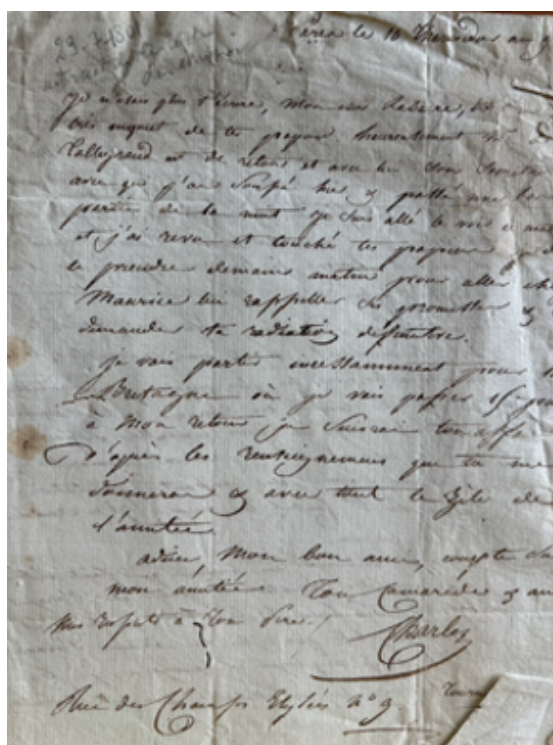 23.
Paris le 16 Thermidor an 9
Je n'osais plus t'écrire, mon cher
très inquiet de tes papiers. heureusement Mr De
Talleyrand est de retour et avec lui Son
avec qui j'ai Soupé hier & passé une
partie de la nuit je Suis allé le voir ce
et j'ai revu et touché tes papiers je
le prendre demain matin pour aller
Maurice lui rappeller Ses promesses &
demander ta radiation definitive.
je vais partir incessamment pour
Bretagne où je vais passer 15
à Mon retour je Suivrai ton
D'après les renseignemens que tu me
donneras & avec tout le Zèle de
l'amitié
adieu, Mon bon ami, compte Sur
mon amitié Ton Camarade & ami
Mes respects à Ton Père. Charles
Rue des Champs Elysées n° 9 Tourn